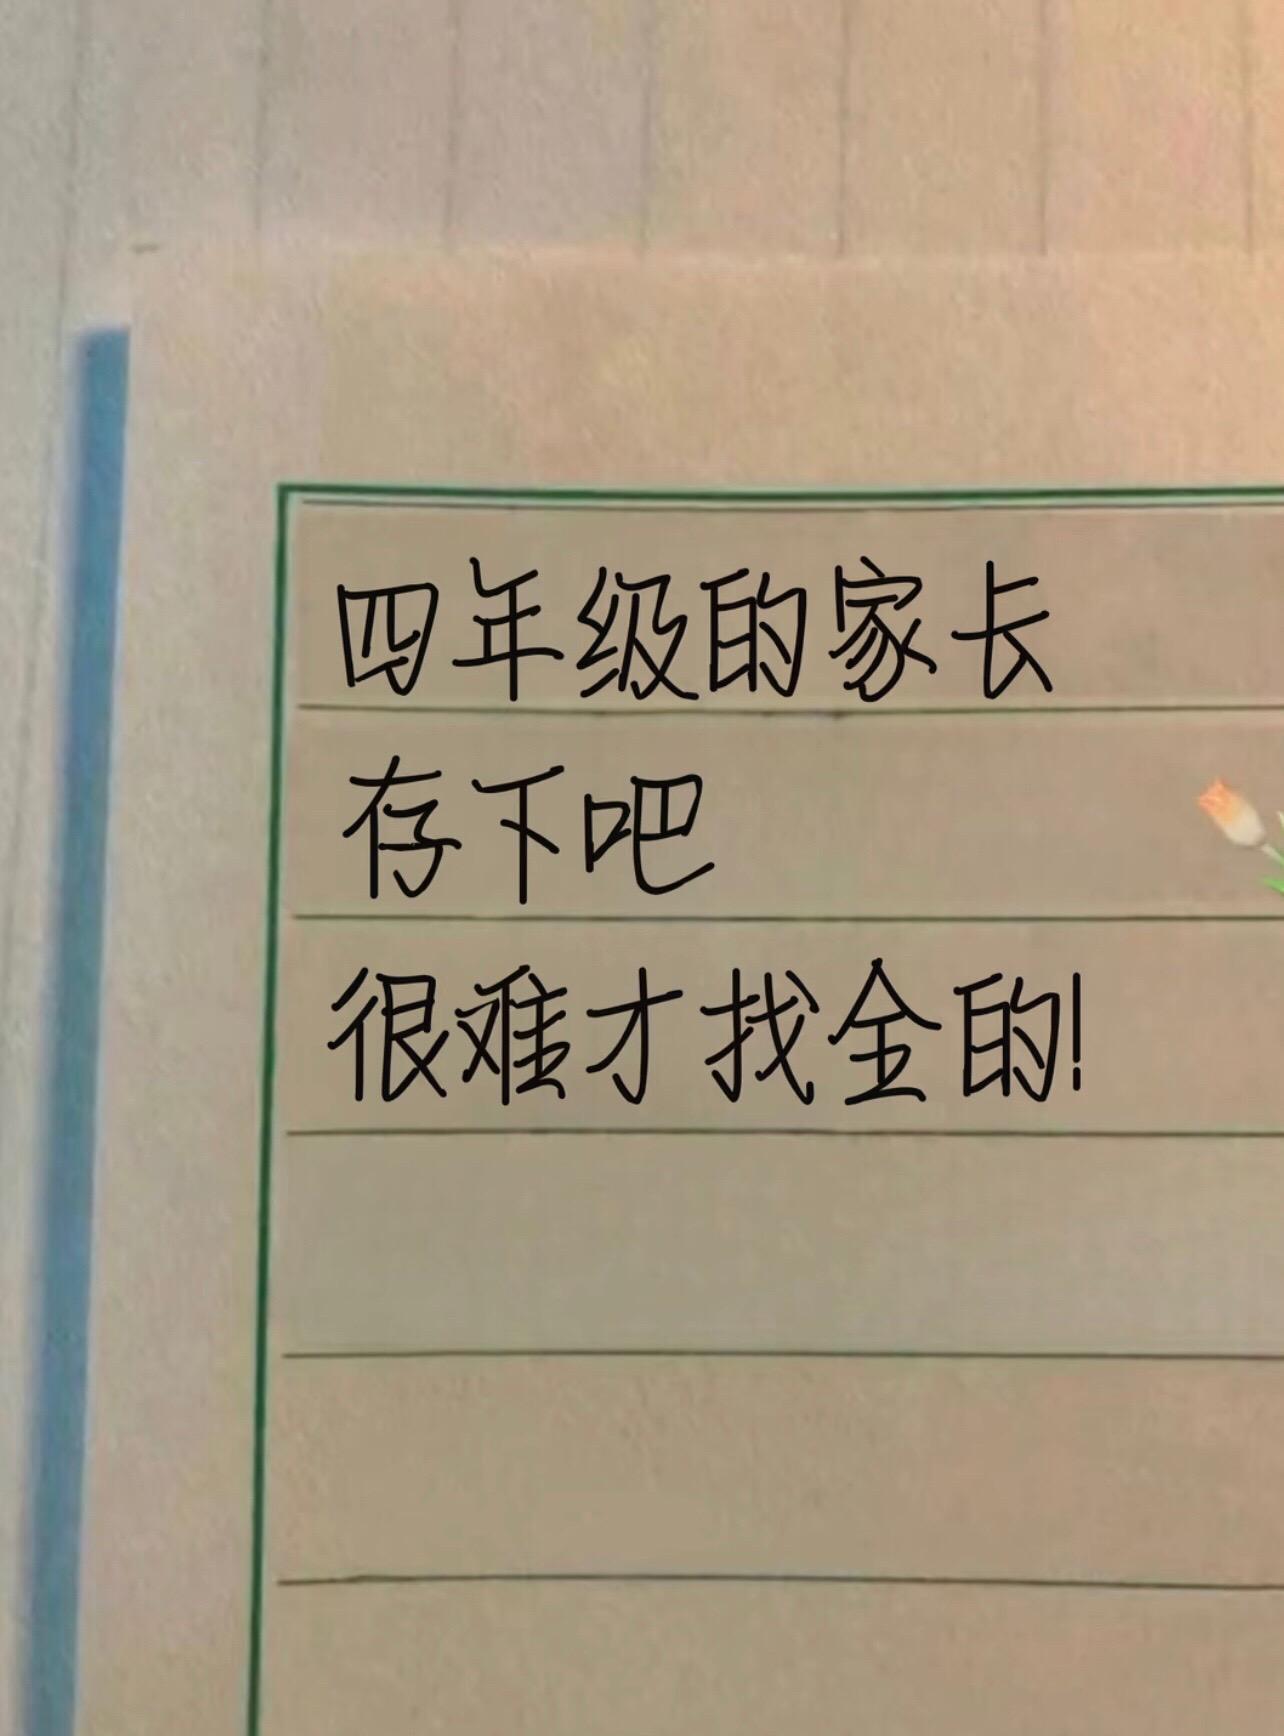 四年级的家长
存下吧
很难才找全的!